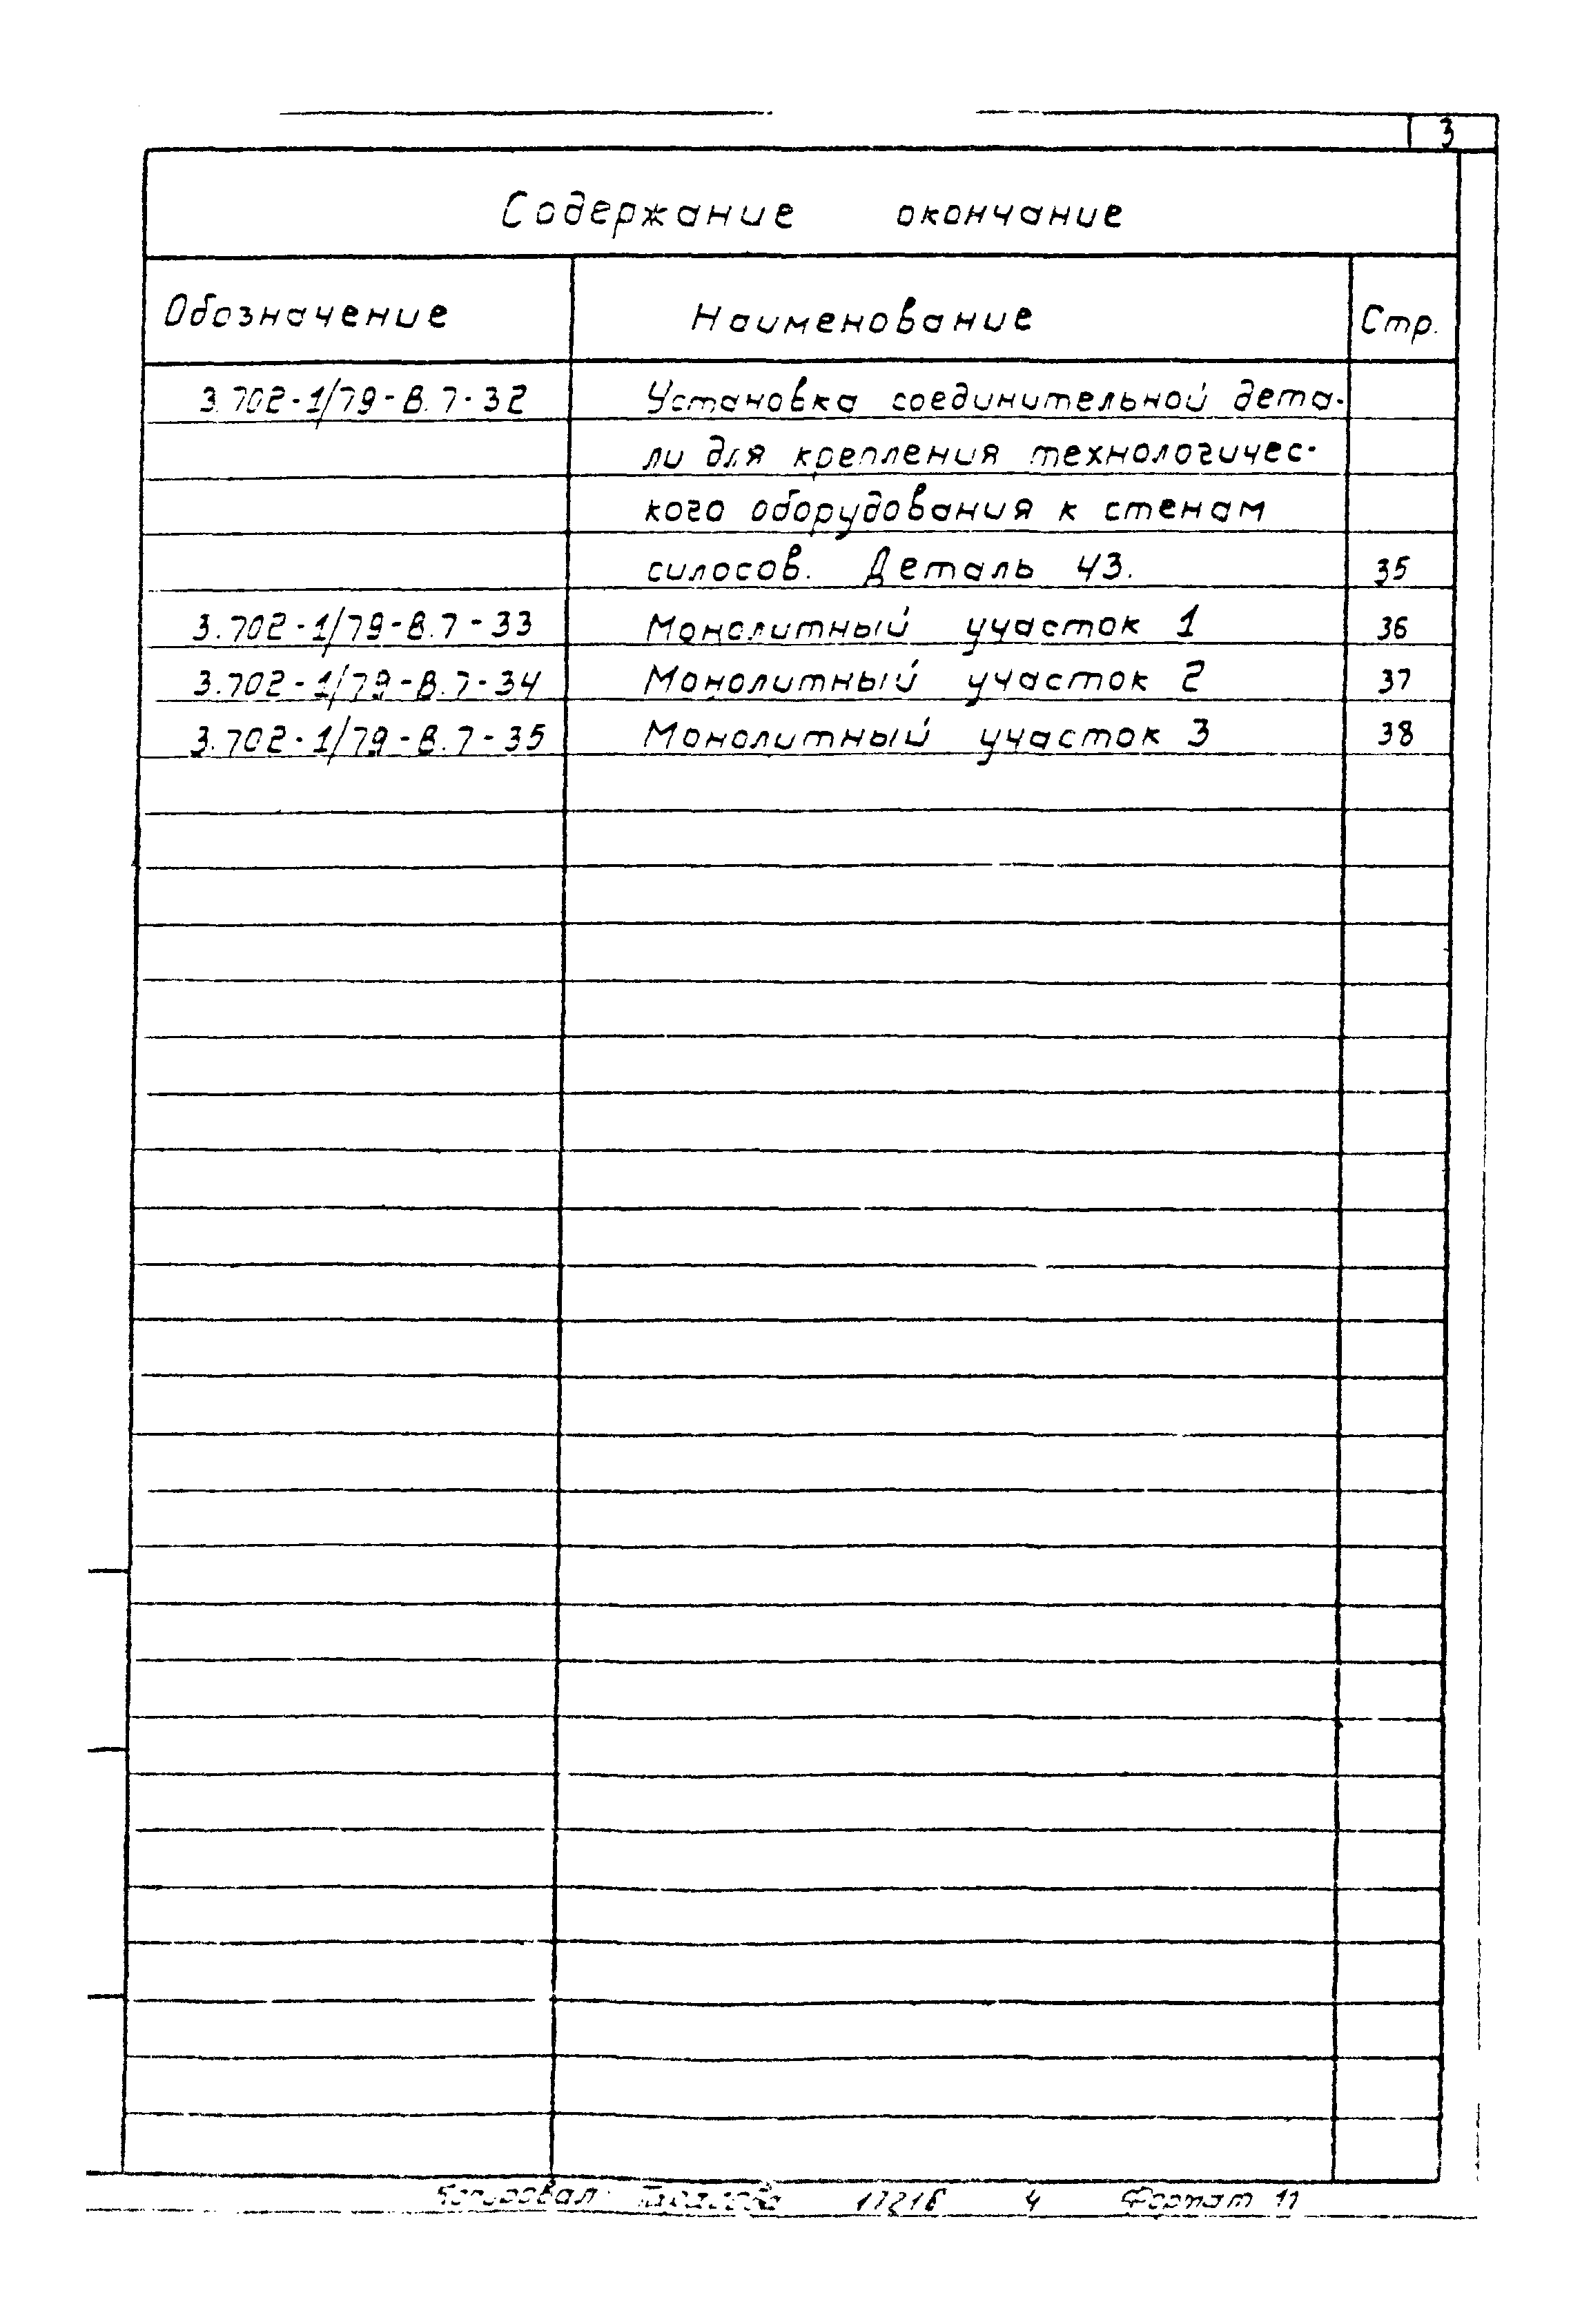 3
Содержание окончание
Обозначение Наименование Стр.
3.702-1/79-В.7-32 Установка соединительной дета-
ли для крепления технологичес-
кого оборудования к стенам
силосов. Деталь 43. 35
3.702-1/79-В.7-33 Монолитный участок 1 36
3.702-1/79-В.7-34 Монолитный участок 2 37
3.702-1/79-В.7-35 Монолитный участок 3 38
Копировал: 17216 4 Формат 11